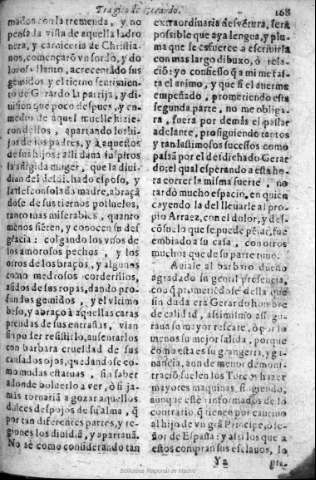 Tragico de Gerardo. 168
mados con la tremenda, y no
pensada vista de aquella ladro
nera, y carniceria de Christia-
nos, començaró vn sordo, y do
loroso llanto, acrecentado sus
gemidos y el tierno sentimien-
to de Gerardo la particion, y di
uision que poco despues, y en-
medio de aquel muelle hizie-
ron dellos, apartando los hi-
jos de los padres, y à aquestos
de sus hijos: alli daua suspiros
la afligida muger, que la diui-
dian del dulce esposo, y
la desconsolada madre, abraçã
dose de sus tiernos polluelos,
tanto mas miserables, quanto
menos sienten, y conocen su des
gracia: colgando los vnos de
los amorosos pechos, y los
otros de los braços, y algunos
como medrosos corderillos,
asidos de sus ropas, dando pro-
fundos gemidos, y el vltimo
beso, y abraço à aquellas caras
prendas de sus entrañas, vian
sin poderlo resistir lo, ausentarlos
con barbara crueldad de sus
cansados ojos, quedandose co-
mo mudas estatuas, sin saber
adonde boluerlo a ver, ò si ja-
mas tornaria a gozar aquellos
dulces despojos de su alma, q̃
por tan diferentes partes, y re-
giones los diuidiã, y apartauã.
No sè como considerando tan
extraordinaria desventura, serà
possible que aya lengua, y plu-
ma que se esfuerce a escriuirla
con mas largo dibuxo, ò rela-
ció: yo confiesso q̃ a mi me fal-
ta el animo, y que si el auerme
empeñado, prometiendo esta
segunda parte, no me obliga-
ra, fuera por demàs el passar
adelante, prosiguiendo tantos
y tan lastimosos sucessos como
passã por el desdichado Gerar
do; el qual esperando a esta ho
ra correr la misma suerte, no
tardò mucho espacio, en que
cayendo la del lleuarle al pro
pio Arraez, con el dolor, y des-
cósuelo que se puede pésar, fue
embiado a su casa, con otros
muchos que de su parte tuuo.
Auiale al barbaro dueño
agradado su gentil presencia,
con q̃ prometiendose della que
sin duda era Gerardo hombre
de calidad,
raua su mayor rescate, ò por lo
menos su mejor salida, porque
como esta es su grangeria, y ga-
nancia, aun de menor demons-
tració suelen los Turcos hazer
mayores maquinas siguiendo,
aunque estè informados de lo
contrario, q̃ tienen por cautiuo
al hijo de vn grã Principe, ò se-
ñor de España: y assi los que a
estos compran sus esclauos, lo
Y 2
Biblioteca Regional de Madrid